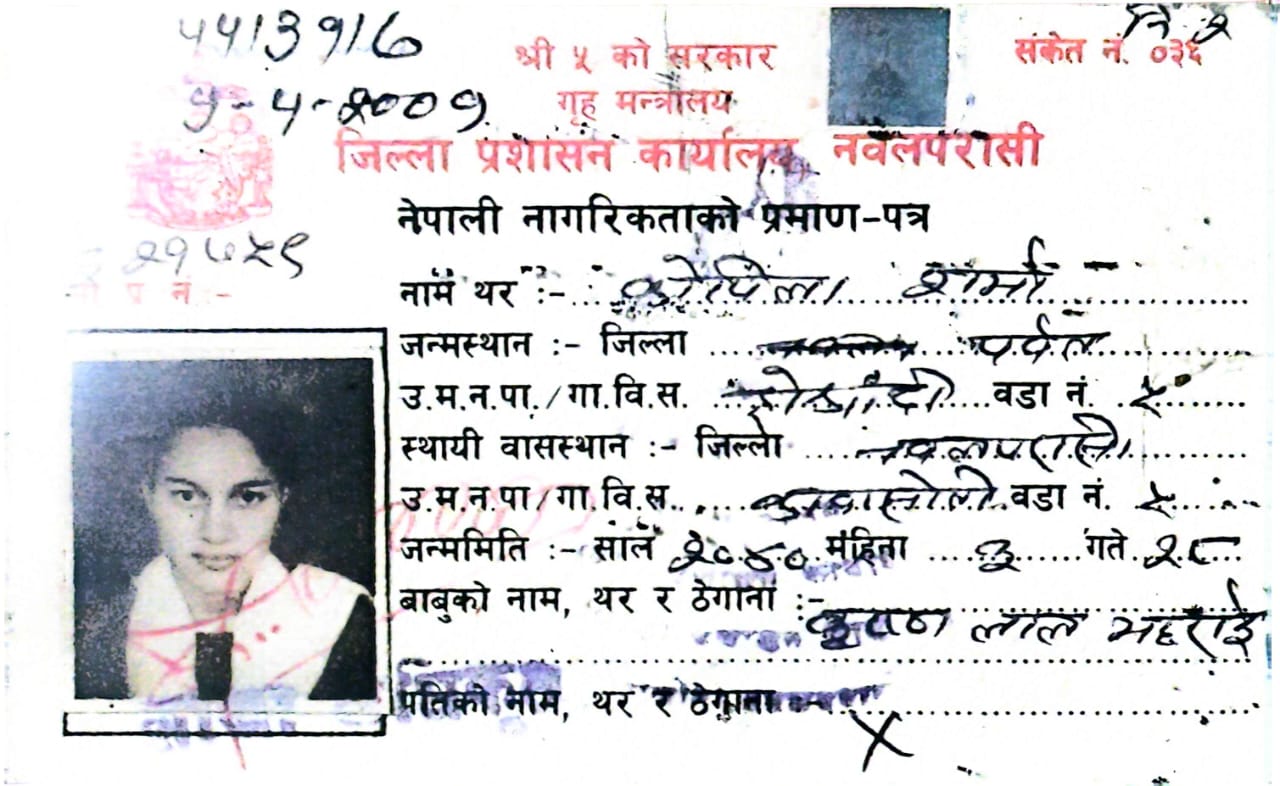 4413916
9-4-2009
श्री ५ को सरकार
गृह मन्त्रालय
संकेत नं. ०३६
जिल्ला प्रशासन कार्यालय, नवलपरासी
नेपाली नागरिकताको प्रमाण-पत्र
नाम थर :- शर्मा
जन्मस्थान :- जिल्ला पर्वत
उ.म.न.पा./गा.वि.स. वडा नं. ५
स्थायी वासस्थान :- जिल्ला नवलपरासी
उ.म.न.पा/गा.वि.स. कावासोती वडा नं. ५
जन्ममिति :- साल २०४० महिना ३ गते २८
बाबुको नाम, थर र ठेगाना :-
लाल
पतिको नाम, थर र ठेगाना X